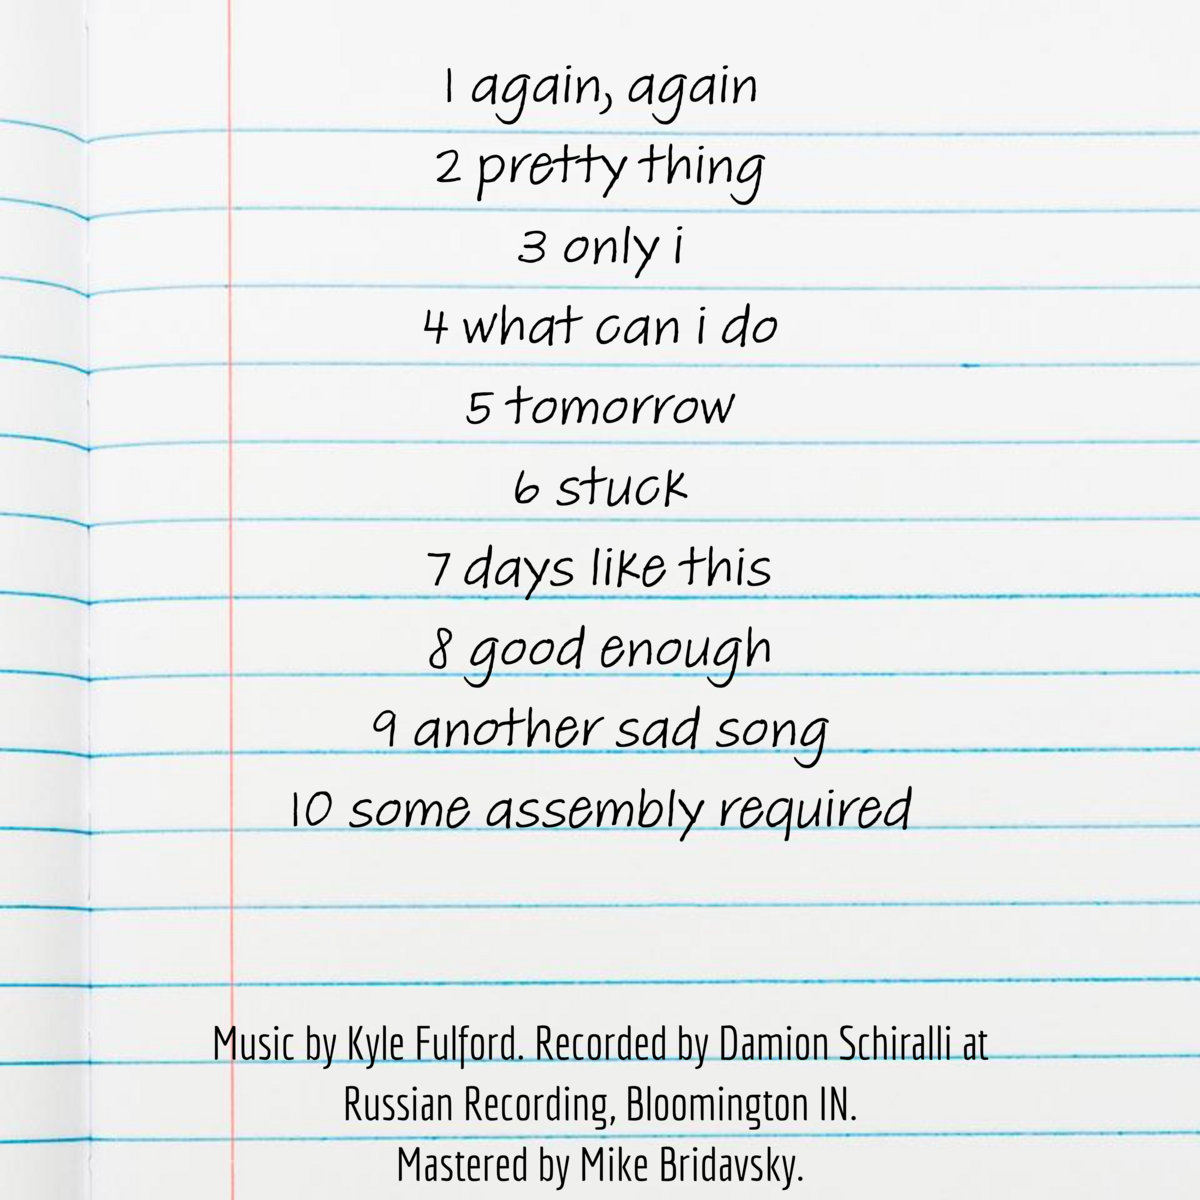 1 again, again
2 pretty thing
3 only i
4 what can i do
5 tomorrow
6 stuck
7 days like this
8 good enough
9 another sad song
10 some assembly required
Music by Kyle Fulford. Recorded by Damion Schiralli at
Russian Recording, Bloomington IN.
Mastered by Mike Bridavsky.